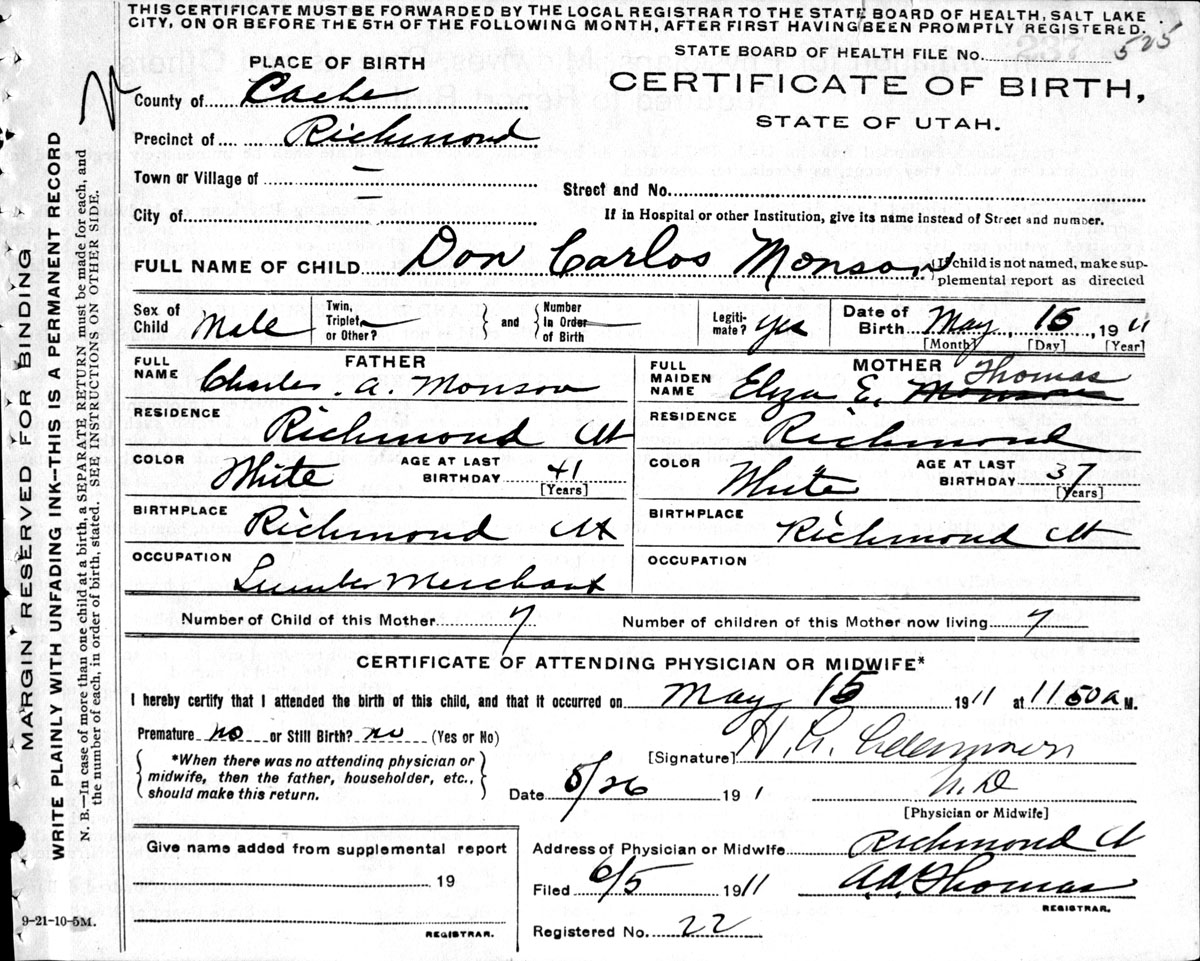 THIS CERTIFICATE MUST BE FORWARDED BY THE LOCAL REGISTRAR TO THE STATE BOARD OF HEALTH, SALT LAKE
CITY, ON OR BEFORE THE 5TH OF THE FOLLOWING MONTH, AFTER FIRST HAVING BEEN PROMPTLY REGISTERED.
STATE BOARD OF HEALTH FILE No. 525
PLACE OF BIRTH
CERTIFICATE OF BIRTH,
STATE OF UTAH.
County of Cache
Precinct of Richmond
Town or Village of —
Street and No.
City of —
If in Hospital or other Institution, give its name instead of Street and number.
FULL NAME OF CHILD Don Carlos Monson {If child is not named, make sup-
plemental report as directed
Sex of Child Male
Twin, Triplet, or Other? —
and
Number In Order of Birth —
Legiti-mate? Yes
Date of Birth May 15, 1911
[Month] [Day] [Year]
FATHER
FULL NAME Charles A. Monson
RESIDENCE Richmond Ut
COLOR White AGE AT LAST BIRTHDAY 41 [Years]
BIRTHPLACE Richmond Ut
OCCUPATION Lumber Merchant
MOTHER
FULL MAIDEN NAME Eliza E. Monson Thomas
RESIDENCE Richmond
COLOR White AGE AT LAST BIRTHDAY 37 [Years]
BIRTHPLACE Richmond Ut
OCCUPATION
Number of Child of this Mother 7 Number of children of this Mother now living 7
CERTIFICATE OF ATTENDING PHYSICIAN OR MIDWIFE*
I hereby certify that I attended the birth of this child, and that it occurred on May 15 1911 at 11 50 a M.
Premature no or Still Birth? no (Yes or No)
*When there was no attending physician or
midwife, then the father, householder, etc.,
should make this return.
[Signature]
M.D
Date 5/26 191 1
[Physician or Midwife]
Give name added from supplemental report
19
REGISTRAR.
Address of Physician or Midwife Richmond Ut
Filed 6/5 1911 A.A. Thomas
REGISTRAR.
Registered No. 22
MARGIN RESERVED FOR BINDING
WRITE PLAINLY WITH UNFADING INK—THIS IS A PERMANENT RECORD
N. B.—In case of more than one child at a birth, a SEPARATE RETURN must be made for each, and
the number of each, in order of birth, stated. SEE INSTRUCTIONS ON OTHER SIDE.
9-21-10-5M.